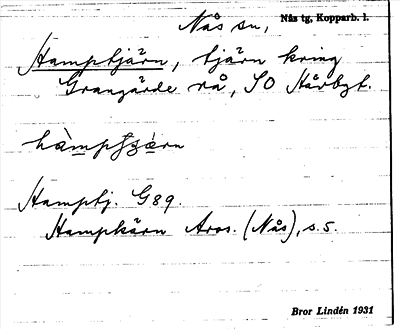 Nås sn, Nås tg, Kopparb. l.
Hamptjärn, tjärn kring
Grangärde rå, SO Håvbyt.
hàmpʃæ̀rn
Hamptj. G89.
Hampkärn Aros. (Nås), s. 5.
Bror Lindén 1931